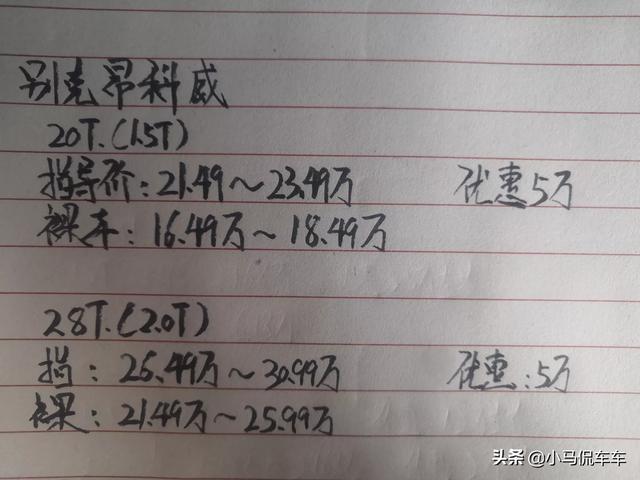 别克昂科威
20T.(1.5T)
指导价:21.49～23.49万 优惠5万
裸车:16.49万～18.49万
28T.(2.0T)
指:26.49万～30.99万 优惠:5万
裸:21.49万～25.99万
头条 @小马侃车车